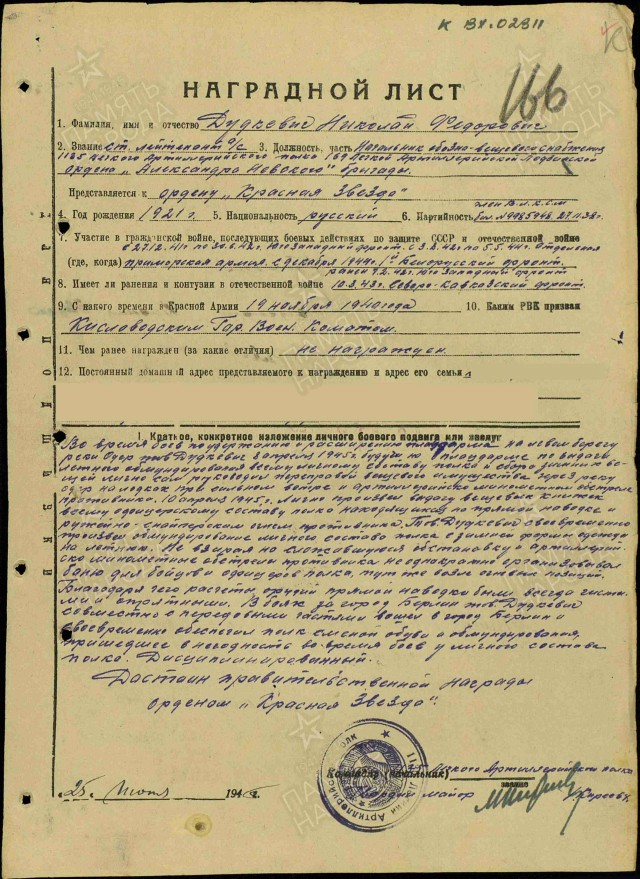 К вх. 02311
166
НАГРАДНОЙ ЛИСТ
1. Фамилия, имя и отчество Дудкевич Николай Федорович
2. Звание ст. лейтенант а/с 3. Должность, часть Начальник обозно-вещевого снабжения
легкого Артиллерийского полка 169 Легкой Артиллерийской
ордена „Александра Невского" бригады.
Представляется к ордену „Красная Звезда"
член В.Л.К.С.М
4. Год рождения 1921 г. 5. Национальность русский 6. Партийность
7. Участие в гражданской войне, последующих боевых действиях по защите СССР и отечественной войне
Юго Западный фронт. Отдельная
(где, когда) приморская армия. с декабря 1944 г. 1й Белорусский фронт.
ранен 9.2.42г. Юго Западный фронт
8. Имеет ли ранения и контузии в отечественной войне 10.3.43г. Северо-Кавказский фронт.
9. С какого времени в Красной Армии 19 ноября 1940 года 10. Каким РВК призван
Кисловодским Гор. Воен. Коматом.
11. Чем ранее награжден (за какие отличия) не награжден.
12. Постоянный домашний адрес представляемого к награждению и адрес его семьи
1. Краткое, конкретное изложение личного боевого подвига или заслуг
Во время боев по удержанию и расширению плацдарма на левом берегу
реки Одер тов. Дудкевич апреля 1945 г. будучи на плацдарме по выдаче
летнего обмундирования всему личному составу полка и сбору зимних ве-
щей лично сам руководил переправой вещевого имущества через реку
Одер на лодках при сильном ветре и артиллерийско минометном обстреле
противника. 10 апреля 1945 г. Лично произвел выдачу вещевых книжек
всему офицерскому составу полка находящимся на прямой наводке и
ружейно-снайперским огнем противника. Тов. Дудкевич своевременно
произвел обмундирование личного состава полка с зимней формы одежды
на летнюю. Не взирая на сложившуюся обстановку и Артиллерий-
ско минометные обстрелы противника неоднократно организовывал
баню для бойцов и офицеров полка, тут же возле огневых позиций.
Благодаря чего расчеты орудий прямой наводки были всегда чисты-
ми и опрятными. В боях за город Берлин тов. Дудкевич
совместно с передовыми частями вошел в город Берлин и
своевременно обеспечил полк сменой обуви и обмундирования,
пришедшее в негодность во время боев у личного состава
полка. Дисциплинированный.
Достоин правительственной награды
орденом „Красная Звезда".
Командир (начальник) Легкого Артиллерийского полка
звание
майор Киреев
25. 194